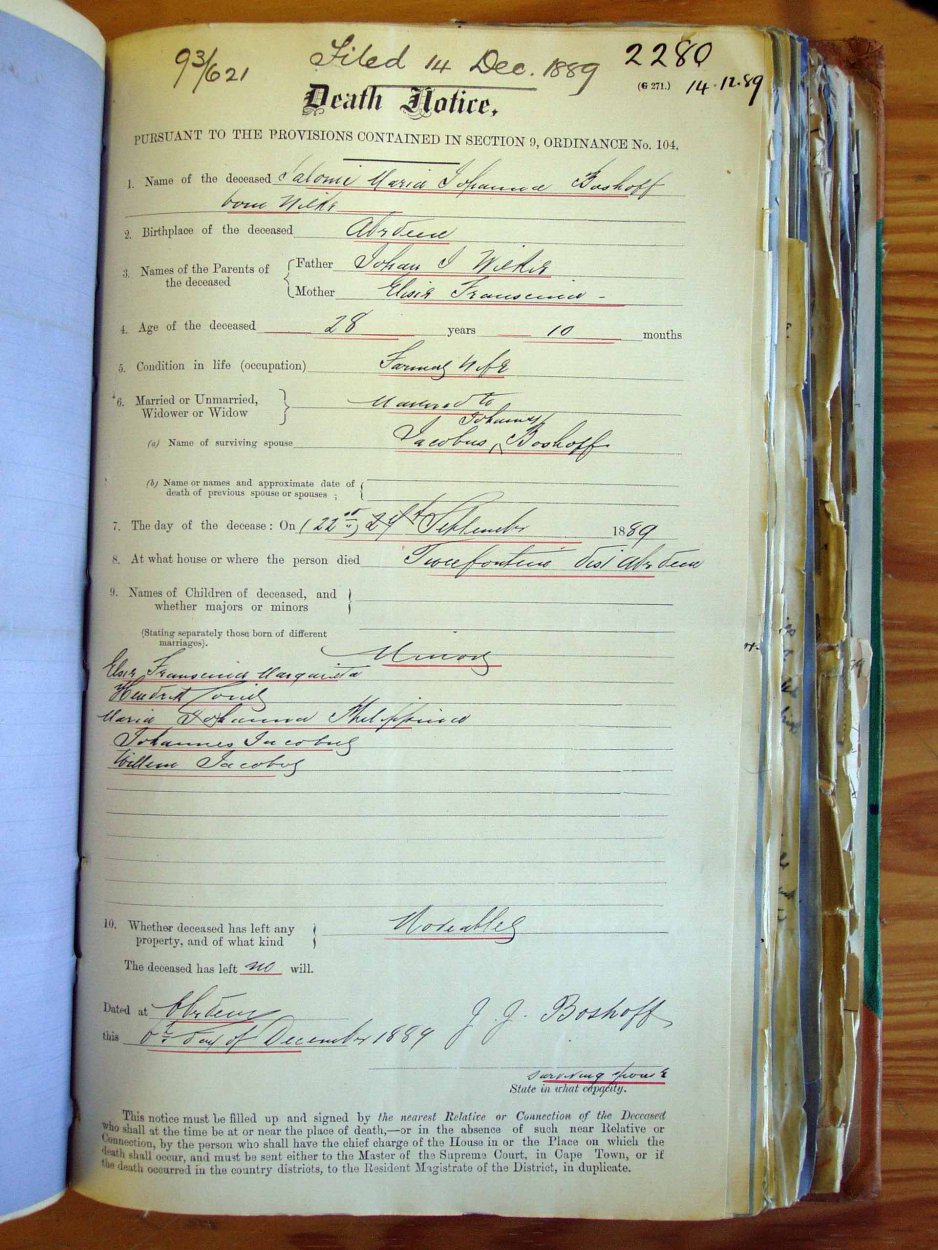 93/621 Filed 14 Dec. 1889 2280
(G 271.) 14.12.89
Death Notice,
PURSUANT TO THE PROVISIONS CONTAINED IN SECTION 9, ORDINANCE No. 104.
1. Name of the deceased Salomie Maria Johanna Boshoff
born Wilke
2. Birthplace of the deceased Aberdeen
3. Names of the Parents of the deceased { Father Johan J Wilke
Mother Elsie Fransina -
4. Age of the deceased 28 years 10 months
5. Condition in life (occupation) Farmers Wife
6. Married or Unmarried, Widower or Widow } Married to
Johannes
(a) Name of surviving spouse Jacobus Boshoff
(b) Name or names and approximate date of
death of previous spouse or spouses ; {
7. The day of the decease: On (22nd) September 1889
8. At what house or where the person died dist Aberdeen
9. Names of Children of deceased, and
whether majors or minors
(Stating separately those born of different
marriages).
Minors
Elsie Fransina Margarita
Hendrik
Maria Johanna Philippina
Johannes Jacobus
Willem Jacobus
10. Whether deceased has left any
property, and of what kind { Moveables
The deceased has left no will.
Dated at Aberdeen
this 6th day of December 1889 J. J. Boshoff
surviving spouse
State in what capacity.
This notice must be filled up and signed by the nearest Relative or Connection of the Deceased
who shall at the time be at or near the place of death,—or in the absence of such near Relative or
Connection, by the person who shall have the chief charge of the House in or the Place on which the
death shall occur, and must be sent either to the Master of the Supreme Court, in Cape Town, or if
the death occurred in the country districts, to the Resident Magistrate of the District, in duplicate.